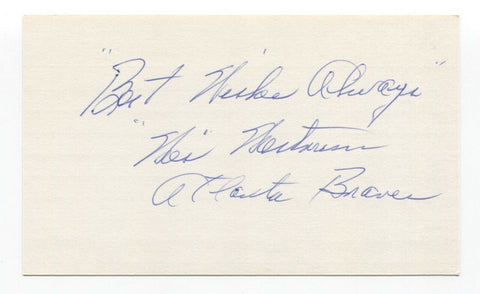 "Best Wishes Always"
"Wes" Westrum
Atlanta Braves